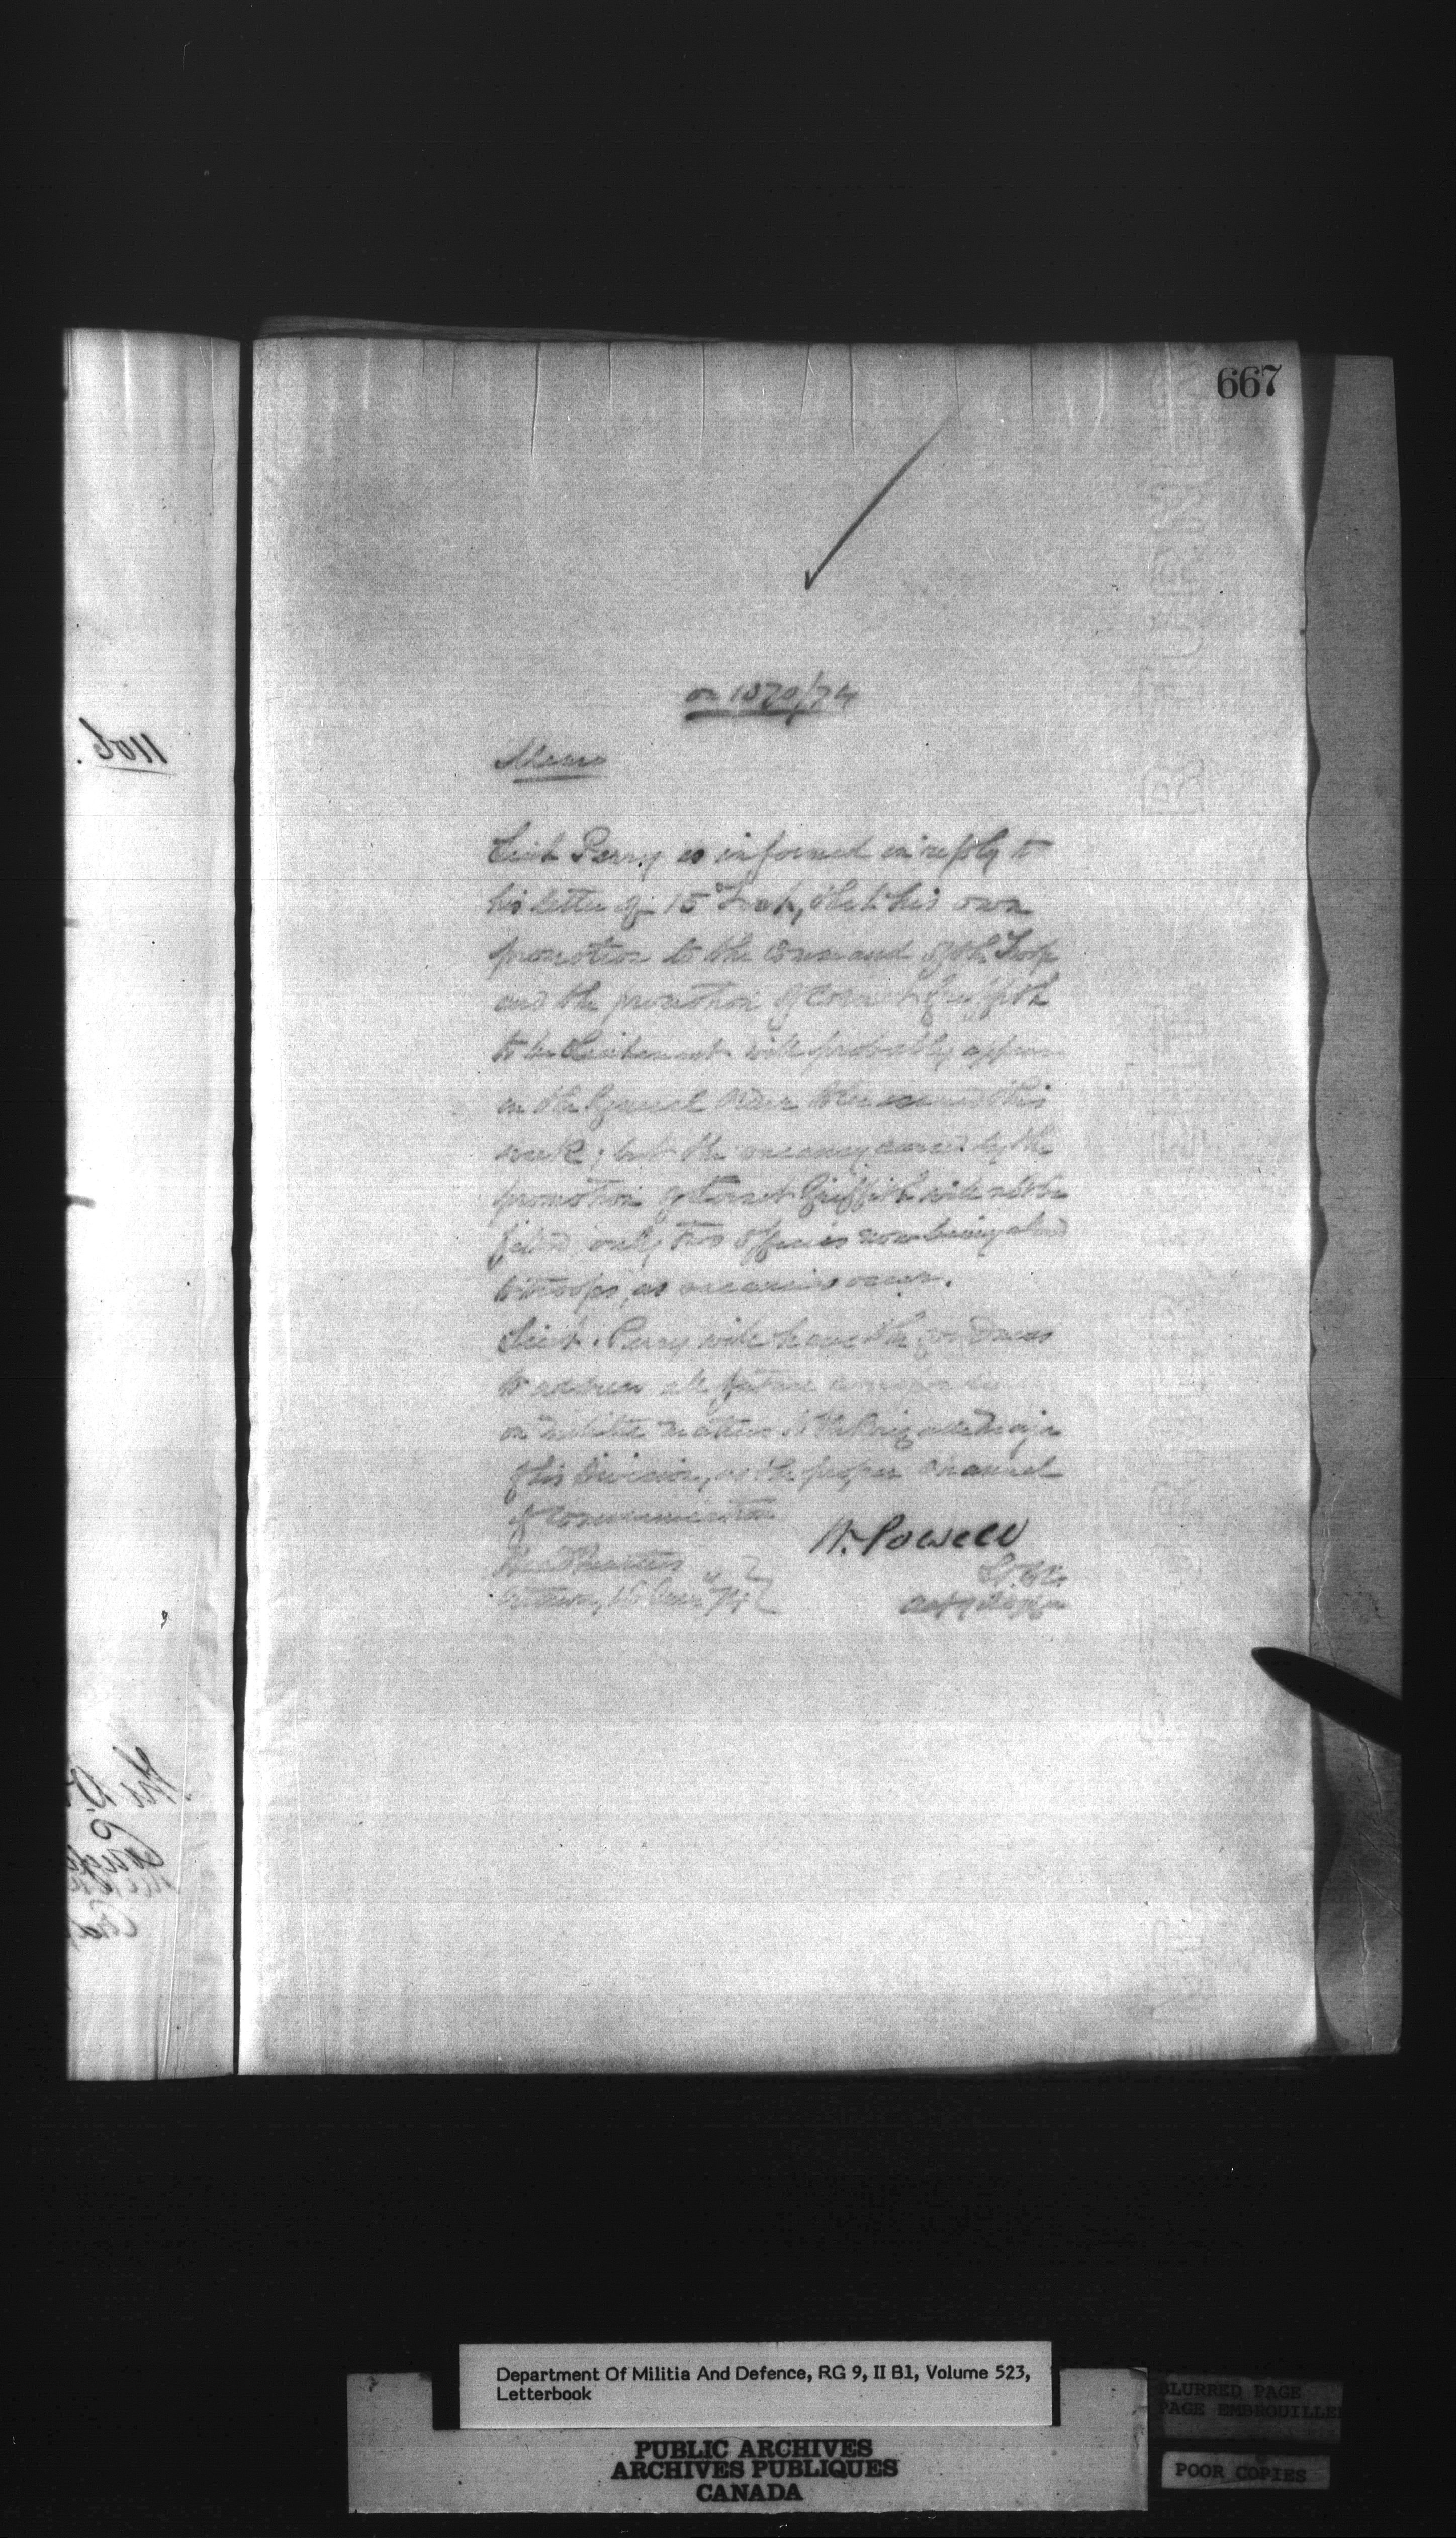 667
on 1870/74
Memo
Lieut Perry is informed in reply to
his letter of 15th Inst, that his own
promotion to the command of the Troop
and the promotion of Cornet Griffith
to be Lieutenant will probably appear
in the General Order to be issued this
week; but the vacancy caused by the
promotion of Cornet Griffith will not be
filled, only two officers now being allowed
to troops, as vacancies occur.
Lieut. Perry will have the goodness
to address all future
on militia matters to the Brigade Major
of his Division, as the proper channel
of communication
Hd Quarters
Ottawa, 74
W. Powell
Lt. Col.
1106.
The D.
Department Of Militia And Defence, RG 9, II B1, Volume 523,
Letterbook
PUBLIC ARCHIVES
ARCHIVES PUBLIQUES
CANADA
BLURRED PAGE
PAGE EMBROUILLEE
POOR COPIES